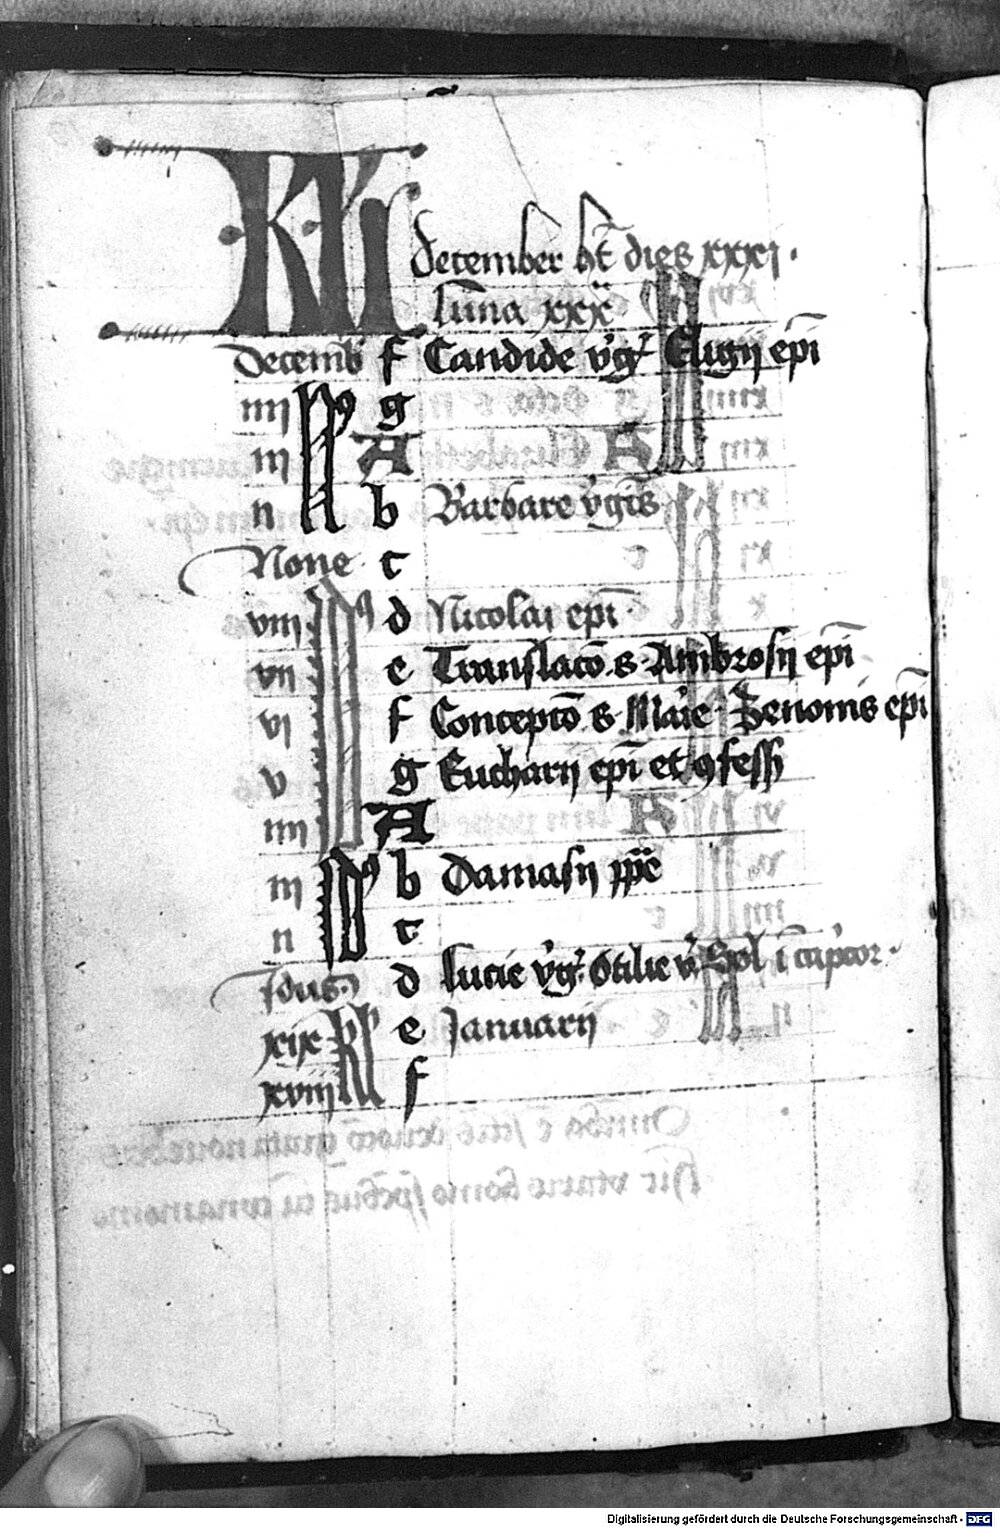 KL december ht dies xxxi.
luna xxx
Decemb f Candide v̾g̾ Eligij ep̄i
iiij N9 g
iij A
ij b Barbare v̾gīs
None c
viij Id9 d Nicolai ep̄i.
vij e Translac̄o s. Ambrosij ep̄i
vj f Concepc̄o s. Ma̾ie. Zenonis ep̄i
v g Eucharij ep̄i et 9fess
iiij A
iij Id9 b Damasij pp̄e
ij c
Idus d Lucie v̾g̾. Otilie v̾. Sol ī cap̾cor.
xix kl e Januarij
xviij f
Digitalisierung gefördert durch die Deutsche Forschungsgemeinschaft - DFG